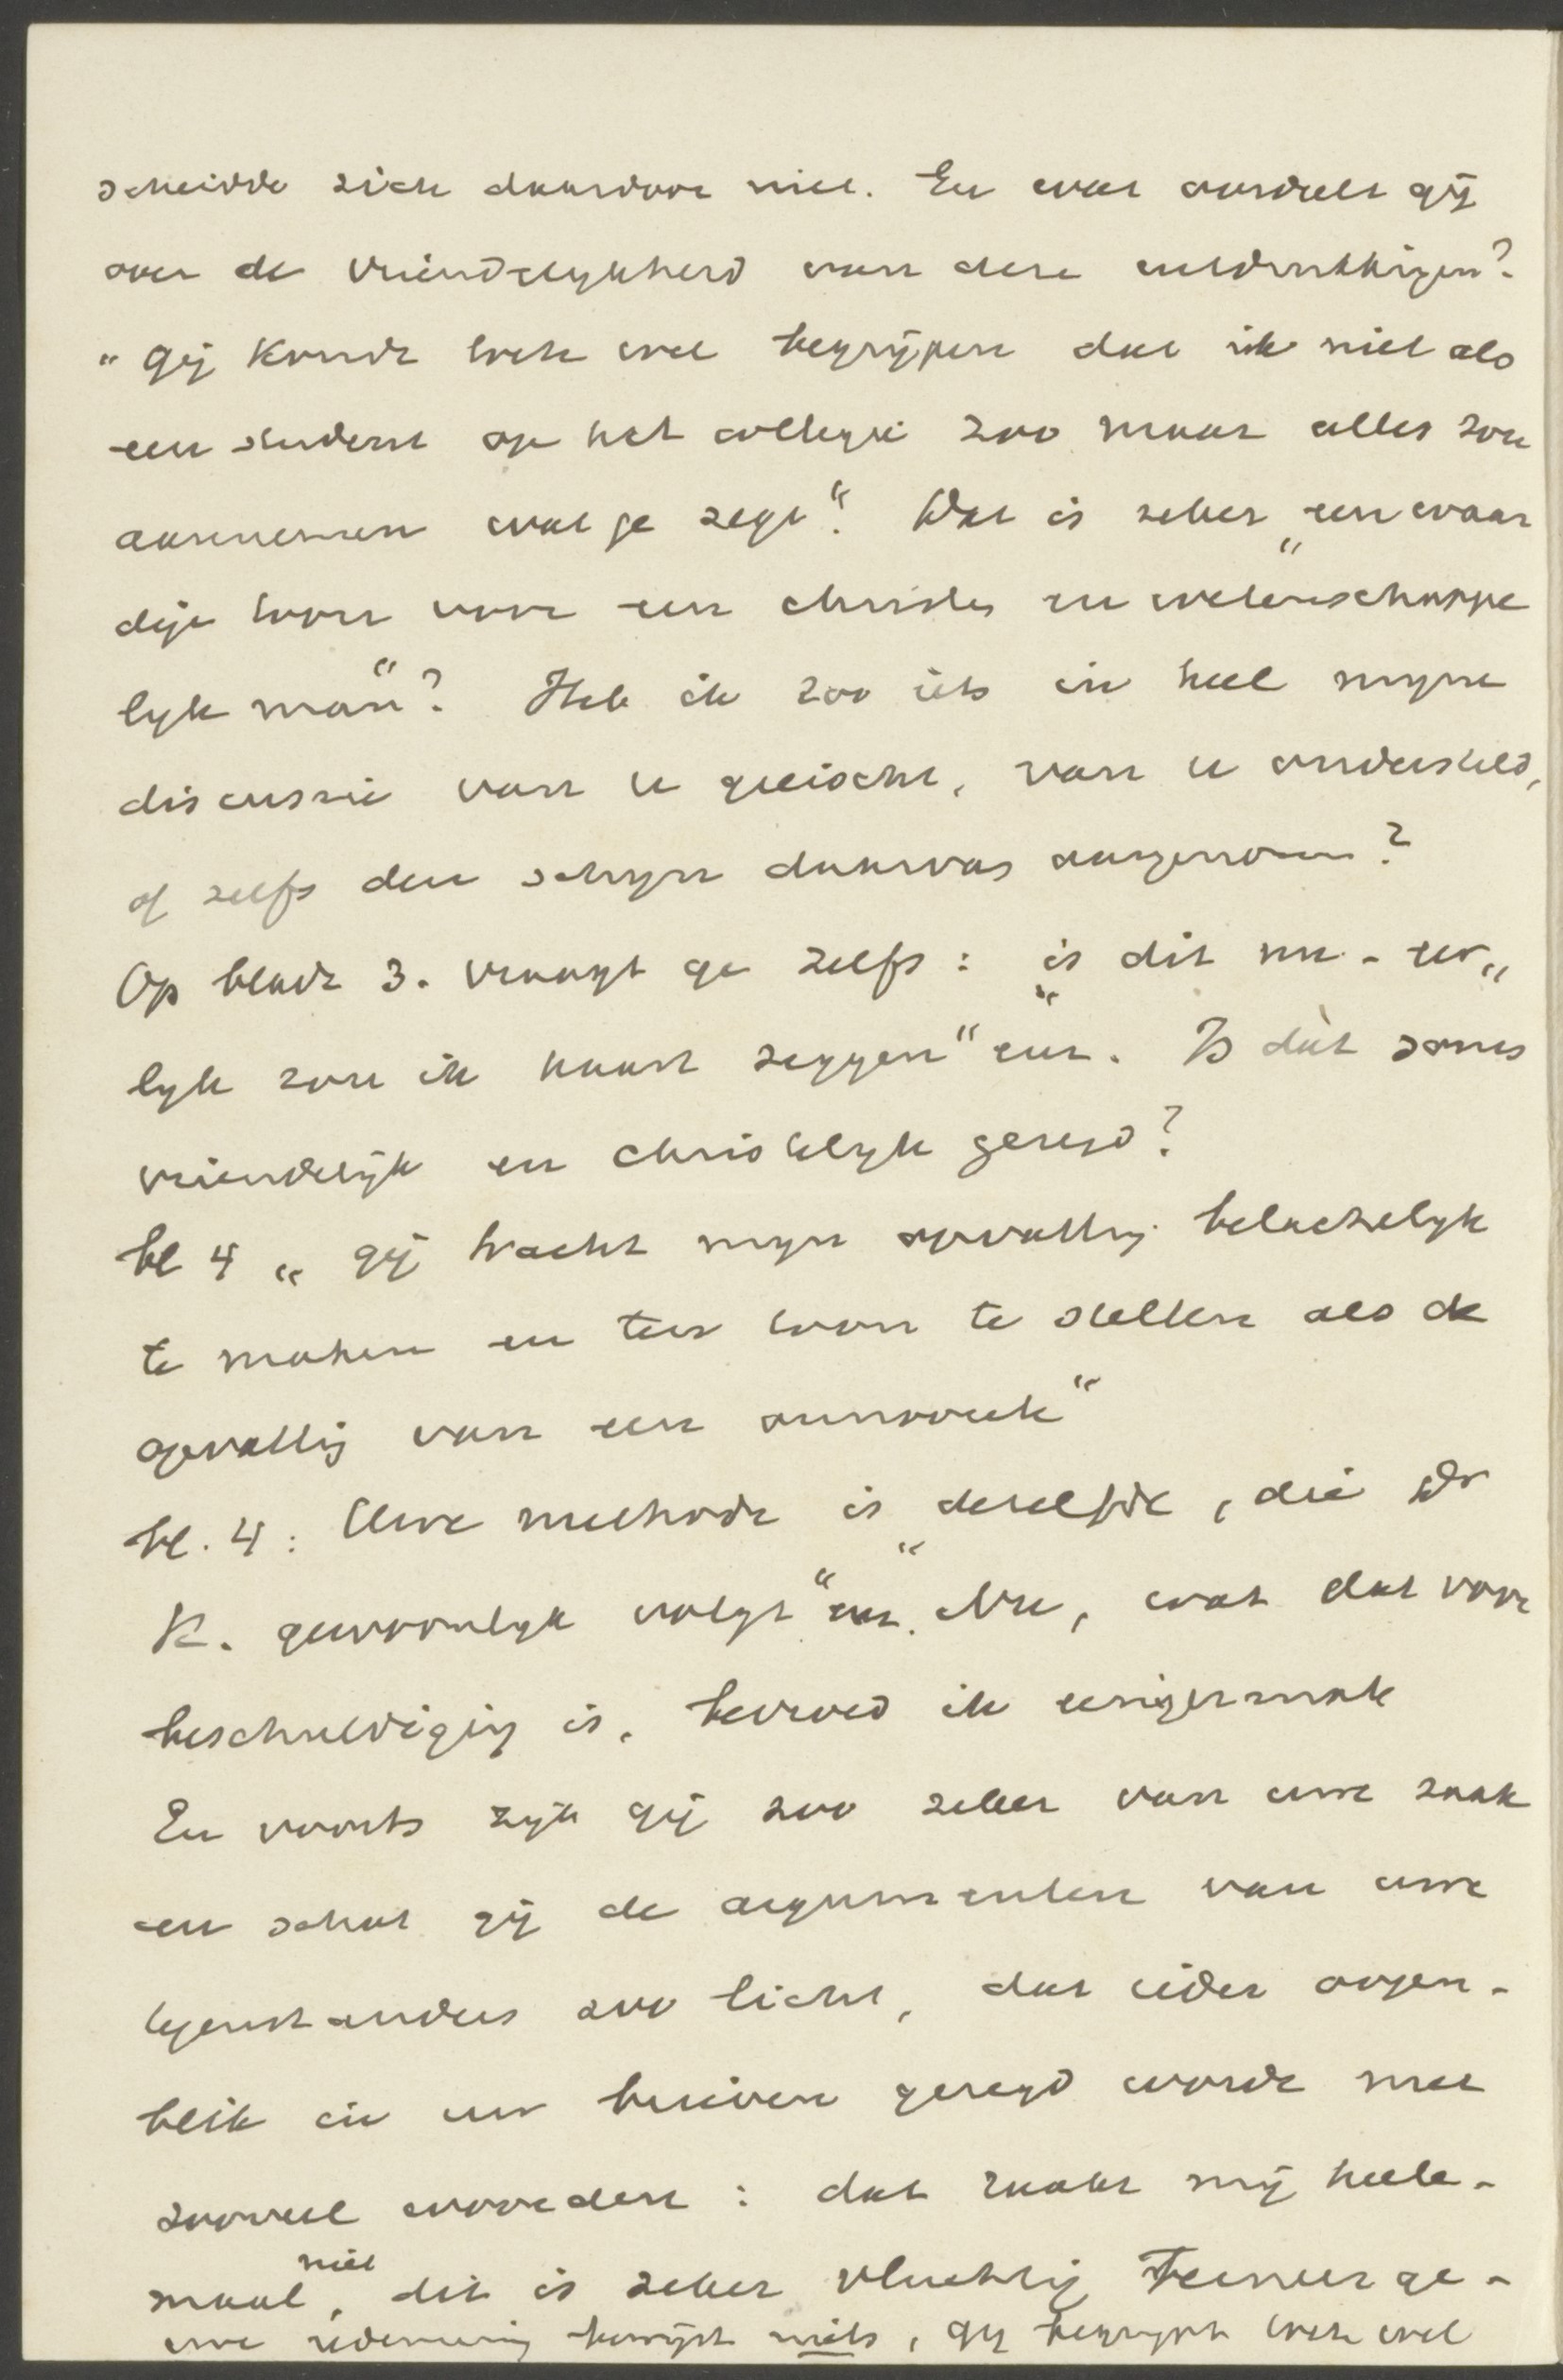 scheidde zich daardoor niet. En wat oordeelt gij
over de vriendelykheid van deze uitdrukkingen?
„Gij kondt toch wel begrijpen dat ik niet als
een student op het collegie zoo maar alles zou
aannemen wat je zegt“. Dat is zeker „een waar
dije toon voor een christen en wetenschappe
lyk man“? Heb ik zoo iets in heel myne
discussie van u geëischt, van u ondersteld,
of zelfs den schyn daarvan aangenomen?
Op bladz 3. vraagt ge zelfs: „is dit nu - eer„
lyk zou ik haast zeggen“ enz. Is dàt soms
vriendelijk en christelyk gezegd?
bl 4 „gij tracht myn opvatting belachelyk
te maken en ten toon te stellen als de
opvatting van een onnoozele“
bl. 4: Uwe methode is „dezelfde, die Dr
K. gewoonlyk volgt“ enz. Nu, wat dat voor
beschuldiging is, bevroed ik eenigermate
En voorts zijt gij zoo zeker van uwe zaak
en schat gij de argumenten van uwe
tegenstanders zoo licht, dat ieder oogen-
blik in uw brieven gezegd wordt met
zooveel woorden: dat raakt mij heele-
maal niet, dit is zeker vluchtig neerge-
uwe redeneering bewijst niets, gij begrypt toch wel